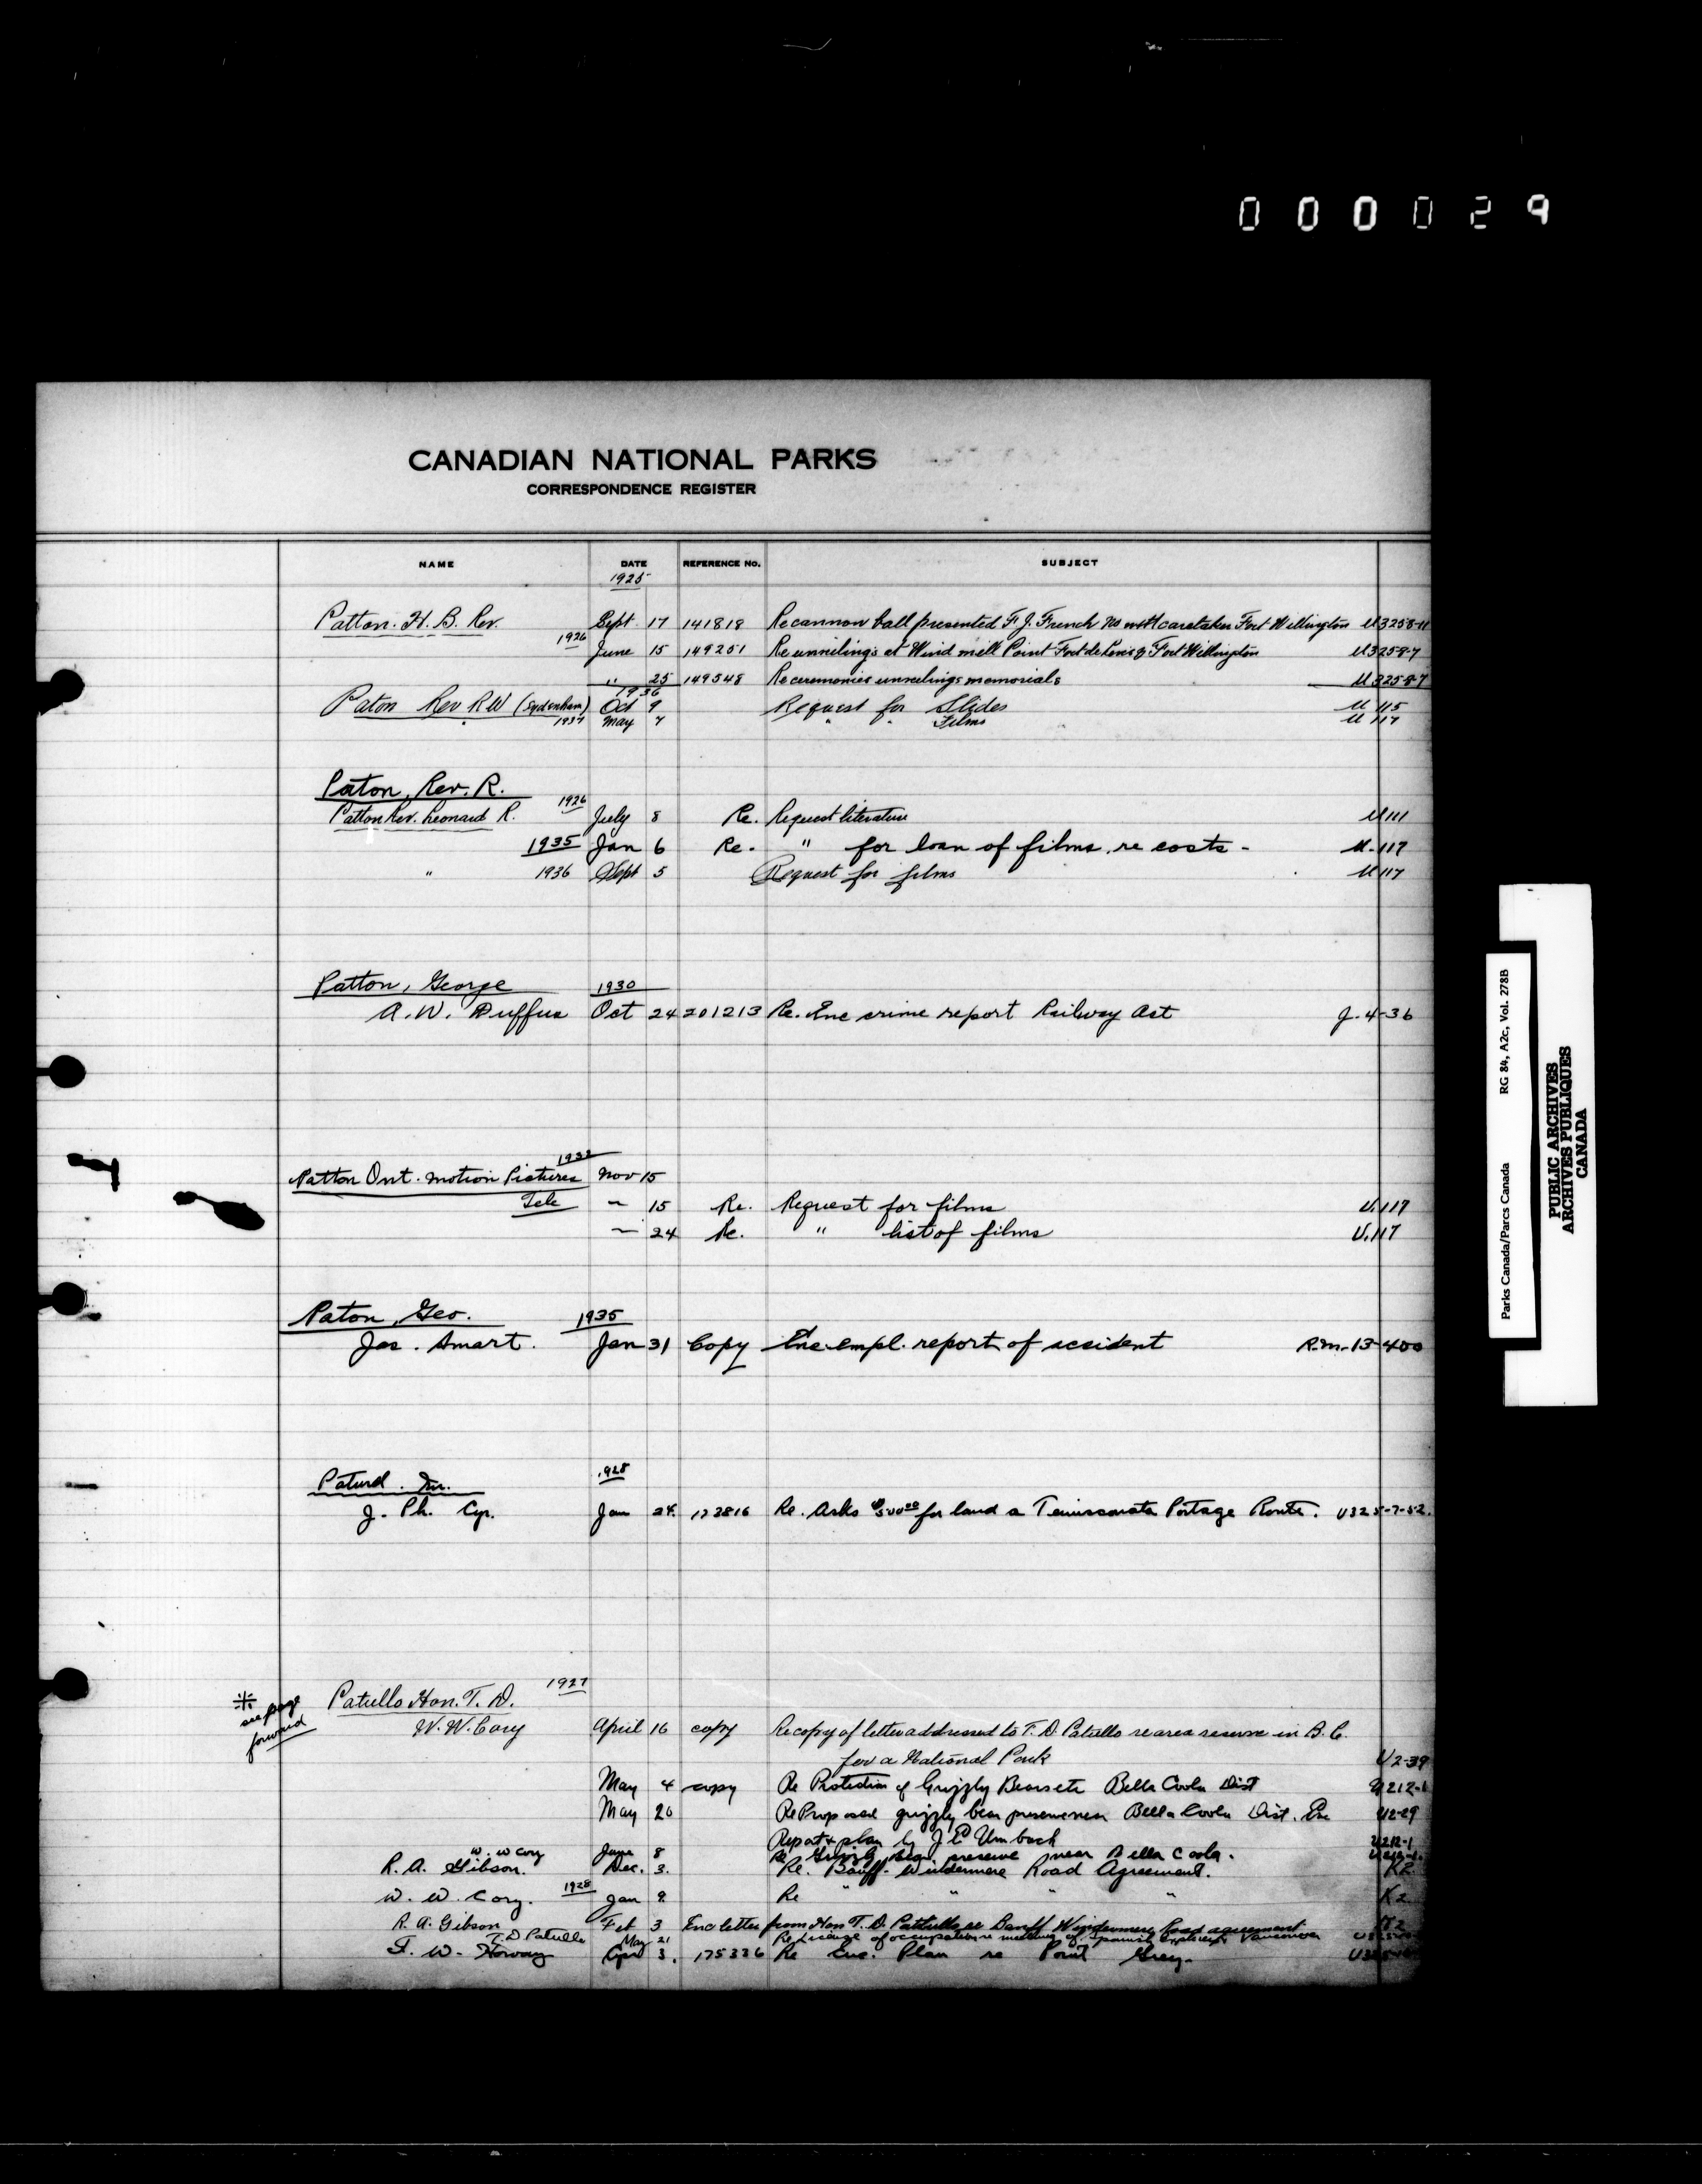 000029
CANADIAN NATIONAL PARKS
CORRESPONDENCE REGISTER
NAME DATE REFERENCE No. SUBJECT
1925
Patton. H. B. Rev. Sept 17 141818 Re cannon ball presented F. J. French caretaker Fort Wellington U3258-11
1926 June 15 149251 Re unveilings at Wind mill Point Fort de Levis & Fort Wellington U3258-7
" 25 149548 Re ceremonies unveilings memorials U3258-7
1936
Paton Rev R W (Sydenham) Oct 9 Request for Slides U 115
1937 May 7 " " Films U 117
Paton, Rev. R.
1926
Patton Rev. Leonard R. July 8 Re. Request literature U111
1935 Jan 6 Re. " for loan of films, re costs - U-117
" 1936 Sept 5 Request for films U117
Patton, George 1930
A. W. Duffus Oct 24 201213 Re. Enc crime report Railway Act J-4-36
Patton Ont. Motion Pictures Nov 15
Tele 15 Re. Request for films U.117
24 Re. " list of films U.117
Paton, Geo. 1935
Jas. Smart. Jan 31 Copy Enc. empl. report of accident R.M.-13-400
1928
J. Ph. Cyr. Jan 24. 173816 Re. Asks $500.00 for land a Temiscouata Portage Route. U325-7-52.
1927
* see page forward
Patullo Hon. T. D.
W. W. Cory April 16 copy Re copy of letter addressed to T. D. Patullo re area reserve in B. C.
for a National Park U2-39
May 4 copy Re Protection of Grizzly Bears etc Bella Coola Dist U212-1
May 20 Re Proposed grizzly bear preserve near Bella Coola Dist. Enc U2-29
Report & plan by J E Umbach U212-1
W. W Cory June 8 Re Grizzly Bear preserve near Bella Coola.
R. A. Gibson. Dec. 3. Re. Banff-Windermere Road Agreement. K2.
W. W. Cory. 1928 Jan 9. Re " " " " K2
R. A. Gibson Feb 3 Enc letter from Hon T. D. Pattullo re Banff Windermere Road agreement K2
T. D Patullo May 21 Re License of occupation re meeting of Spanish Vancouver
F. W. Howay Apr 3. 175336 Re Enc. Plan re Point Grey.
Parks Canada/Parcs Canada RG 84, A2c, Vol. 2788
PUBLIC ARCHIVES
ARCHIVES PUBLIQUES
CANADA